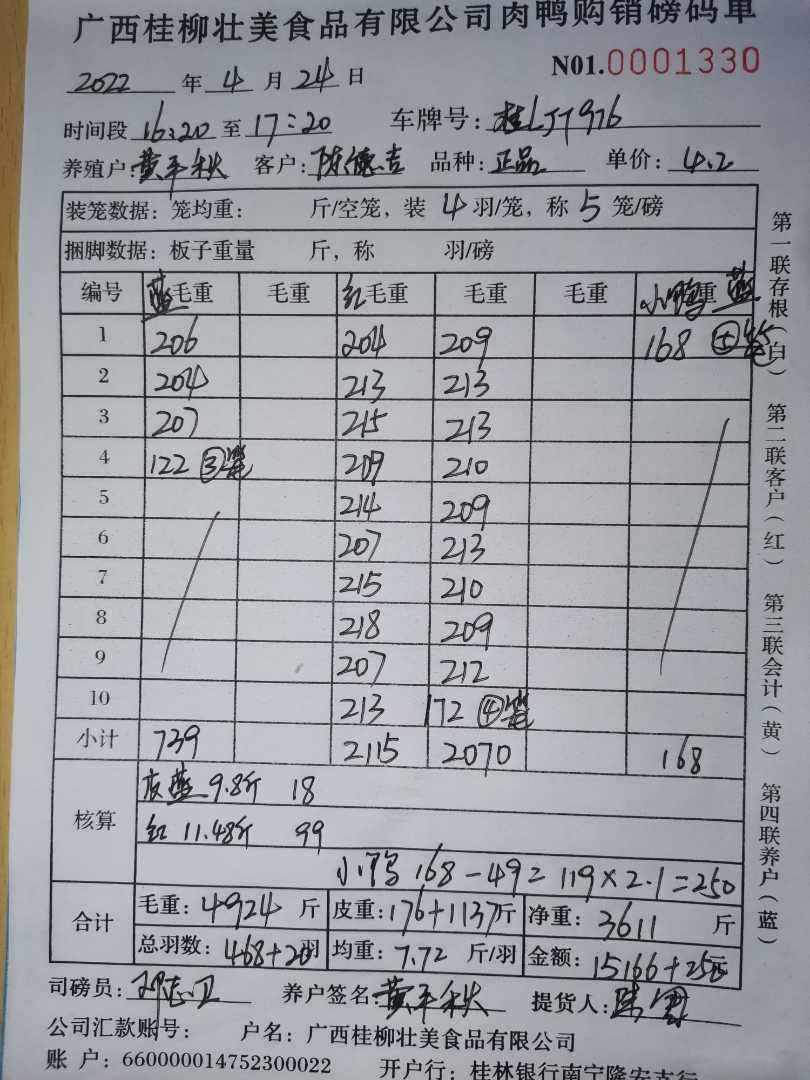 广西桂柳壮美食品有限公司肉鸭购销磅码单
2022 年 4 月 24 日 N01.0001330
时间段 16:20 至 17:20 车牌号: 桂LJT976
养殖户: 黄平秋 客户: 陈德吉 品种: 正品 单价: 4.2
装笼数据: 笼均重: 斤/空笼, 装 4 羽/笼, 称 5 笼/磅
捆脚数据: 板子重量 斤, 称 羽/磅
编号 蓝毛重 毛重 红毛重 毛重 毛重 小鸭重 蓝
1 206 204 209 168 ⑤笼
2 204 213 213
3 207 215 213
4 122 ③笼 209 210
5 214 209
6 207 213
7 215 210
8 218 209
9 207 212
10 213 172 ④笼
小计 739 2115 2070 168
核算
皮蓝 9.8斤 18
红 11.48斤 99
小鸭 168-49=119×2.1=250
合计
毛重: 4924 斤 皮重: 176+1137斤 净重: 3611 斤
总羽数: 468+20羽 均重: 7.72 斤/羽 金额: 15166+250元
司磅员: 养户签名: 黄平秋 提货人:
公司汇款账号: 户名: 广西桂柳壮美食品有限公司
账 户: 660000014752300022 开户行: 桂林银行南宁隆安支行
第一联存根(白) 第二联客户(红) 第三联会计(黄) 第四联养户(蓝)